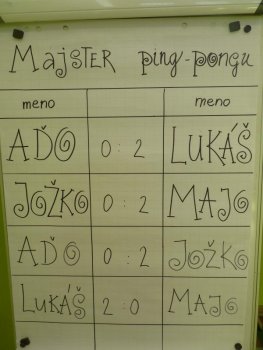 Majster ping-pongu
meno meno
AĎO 0 : 2 LUKÁŠ
JOŽKO 0 : 2 MAJO
AĎO 0 : 2 JOŽKO
LUKÁŠ 2 : 0 MAJO